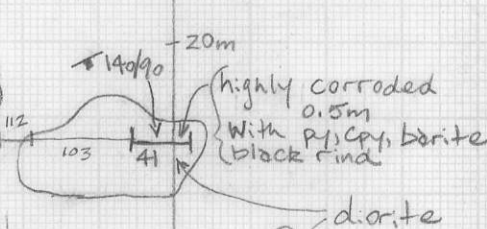 20m
140/90
highly corroded
0.5m
with py, cpy, barite
black rind
112
103
41
diorite